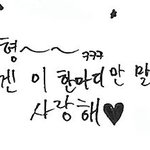 형~~
ㅋㅋㅋ
겐 이 한마디만 말
사랑해♥